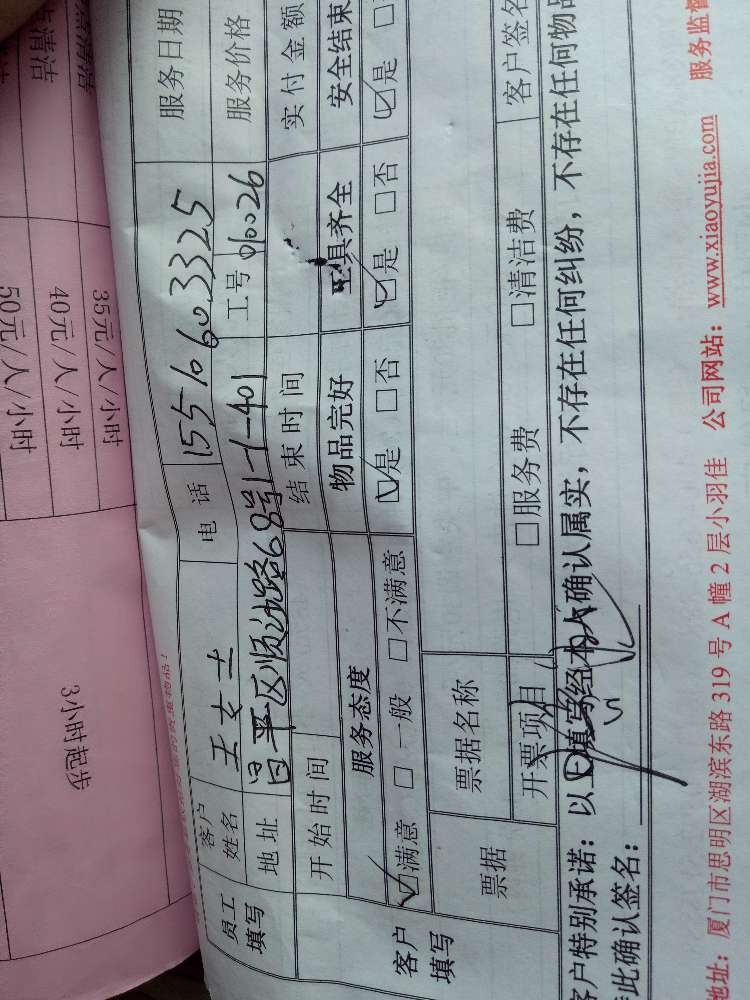 客户姓名 王女士 电话 15510603325 服务日期
员工填写 地址 昌平区顺沙路68号1-1-401 工号 010026 服务价格
开始时间 结束时间 实付金额
服务态度 物品完好 工具齐全 安全结束
客户填写 ☑满意 □一般 □不满意 ☑是 □否 ☑是 □否 ☑是
票据 票据名称
开票项目 □服务费 □清洁费 客户签名
客户特别承诺：以上填写经本人确认属实，不存在任何纠纷，不存在任何物品
此确认签名：
地址：厦门市思明区湖滨东路 319 号 A 幢 2 层小羽佳 公司网站：www.xiaoyujia.com 服务监督
35元/人/小时
40元/人/小时
50元/人/小时
3小时起步
清洁